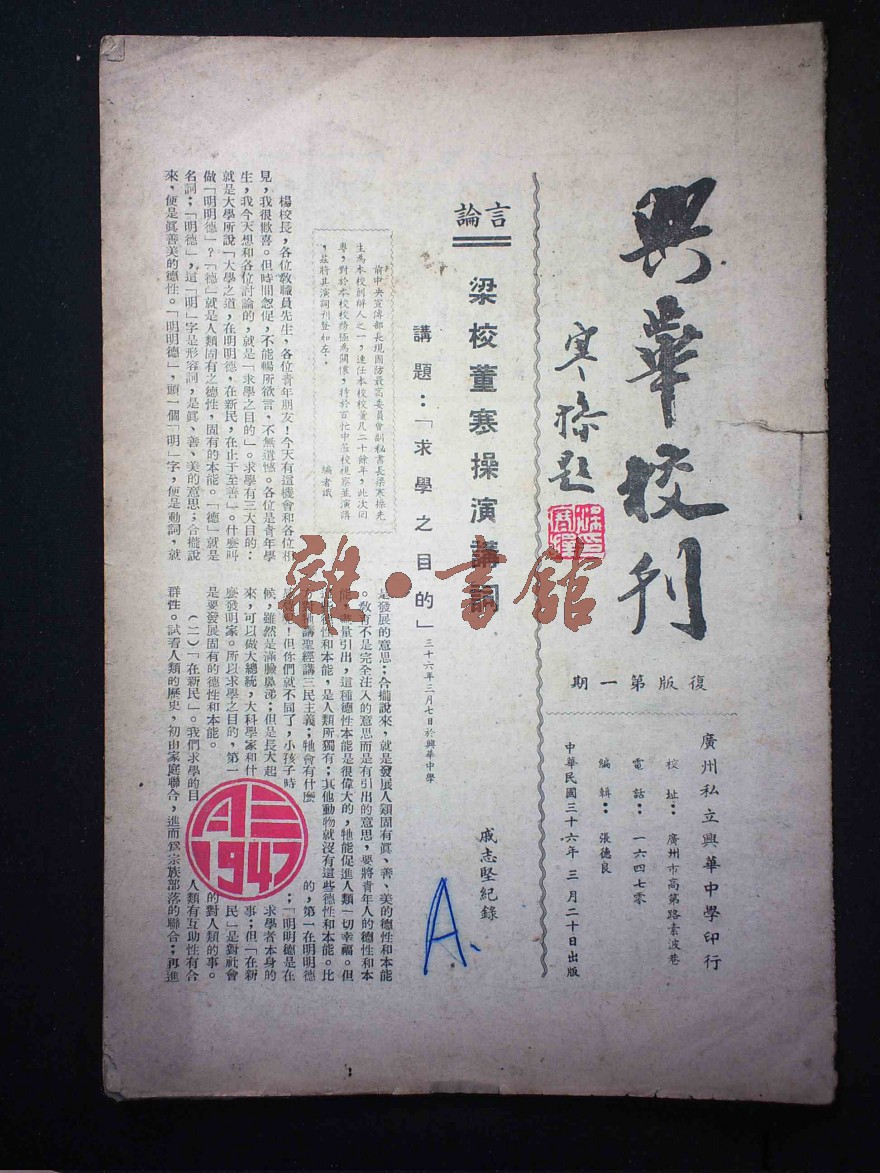 興華校刊
寒操題
復版第一期
廣州私立興華中學印行
校址：廣州市高第路素波巷
電話：一六四七零
編輯：張德良
中華民國三十六年三月二十日出版
言論
梁校董寒操演講詞
講題：「求學之目的」
三十六年三月七日於興華中學
戚志堅紀錄
前中央宣傳部長現國防最高委員會副秘書長梁寒操先
生為本校創辦人之一，連任本校校董凡二十餘年，此次回
粵，對於本校校務極為關懷，特於百忙中蒞校視察並演講
，茲將其演詞刊登如左。
編者識
楊校長，各位教職員先生，各位青年朋友！今天有這機會和各位相
見，我很歡喜。但時間怱促，不能暢所欲言，不無遺憾。各位是青年學
生，我今天想和各位討論的，就是「求學之目的」。求學有三大目的：
就是大學所說「大學之道，在明明德，在新民，在止于至善」。什麼叫
做「明明德」？「德」就是人類固有之德性，固有的本能。「德」就是
名詞；「明德」，這「明」字是形容詞，是眞、善、美的意思；合攏說
來，便是眞善美的德性。「明明德」，頭一個「明」字，便是動詞，就
是發展的意思；合攏說來，就是發展人類固有眞、善、美的德性和本能
。教育不是完全注入的意思而是有引出的意思，要將青年人的德性和本
能，盡量引出，這種德性本能是很偉大的，牠能促進人類一切幸福。但
性和本能，是人類所獨有；其他動物就沒有這些德性和本能。比
對牠講聖經講三民主義；牠會有什麼
！但你們就不同了，小孩子時
候，雖然是滿臉鼻涕；但是長大起
來，可以做大總統，大科學家和什
麼發明家。所以求學之目的，第一
是要發展固有的德性和本能。
（二）「在新民」。我們求學的目
的，第一在明明德
；「明明德是在
求學者本身的
事；但「在新
民」是對社會
的對人類的事。
人類有互助性有合
群性。試看人類的歷史，初由家庭聯合，進而為宗族部落的聯合；再進
A.
A三
1947
雜·書館